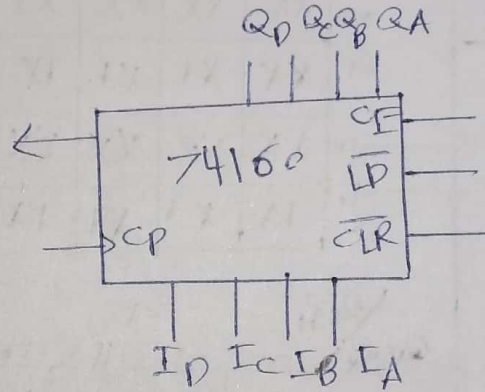 QD QC QB QA
CE
74160
LD
CP CLR
ID IC IB IA